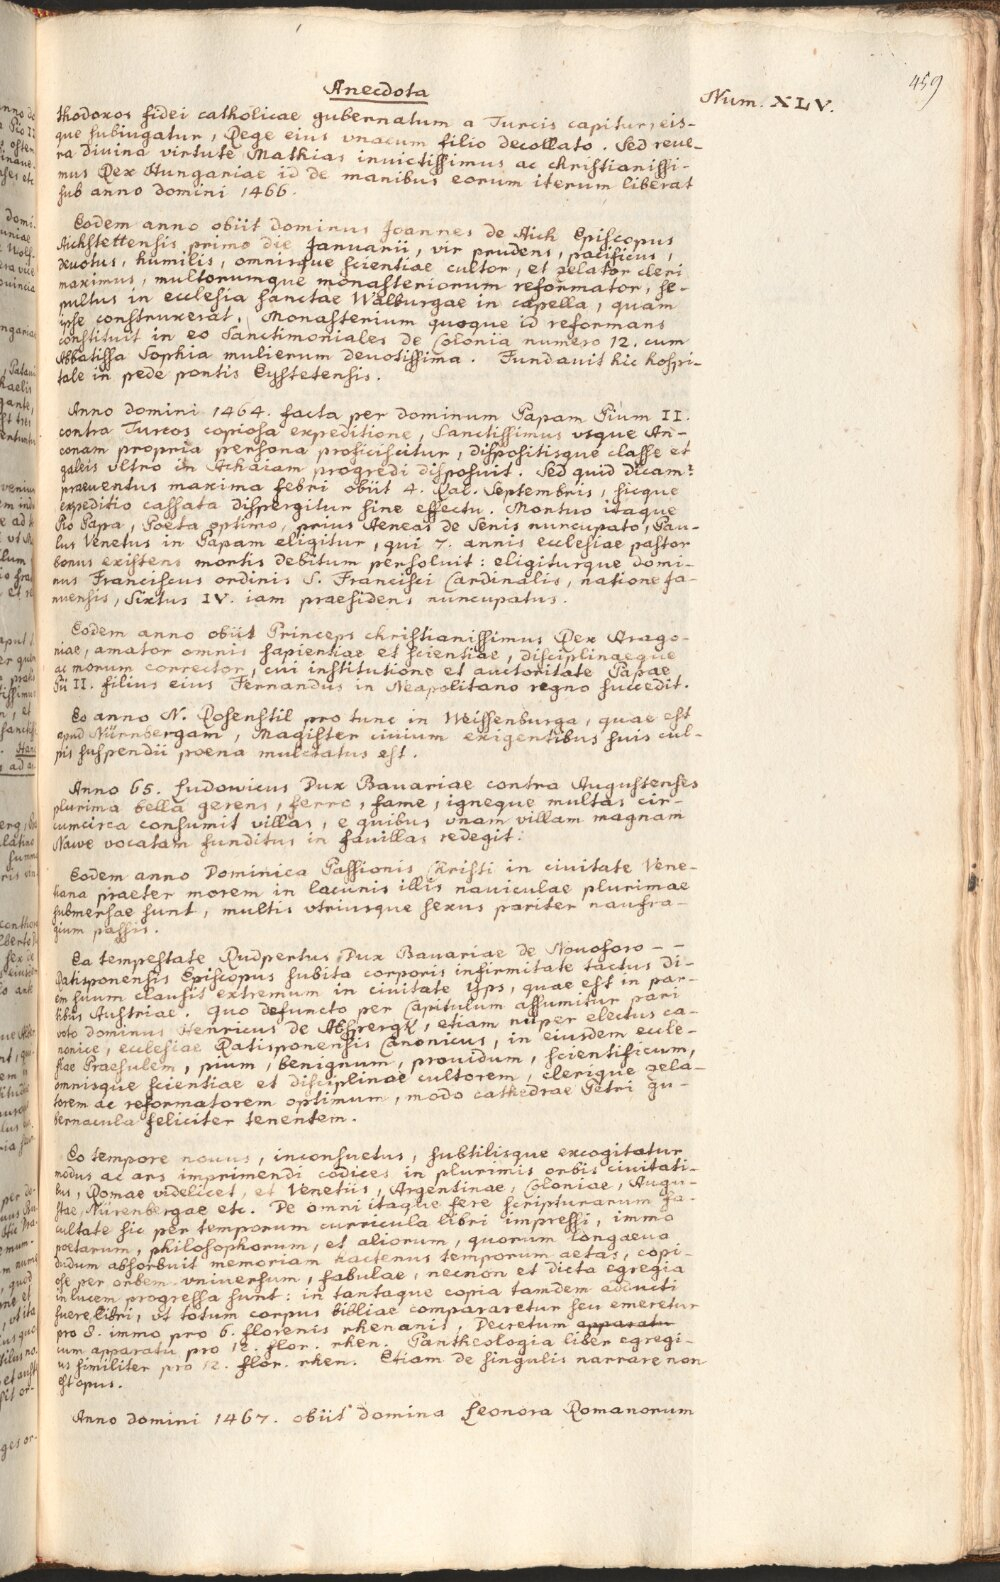 459
Anecdota
Num. XLV.
thodoxos fidei catholicae gubernatum a Turcis capitur, eis-
que subiugatur, Rege eius vnacum filio decollato. Sed reue-
ra diuina virtute Mathias inuictissimus ac christianissi-
mus Rex Hungariae id de manibus eorum iterum liberat
sub anno domini 1466.
Eodem anno obiit dominus Joannes de Aich Episcopus
Aichstettensis primo die Januarii, vir prudens, pacificus,
deuotus, humilis, omnisque scientiae cultor, et zelator cleri
maximus, multorumque monasteriorum reformator, se-
pultus in ecclesia sanctae Walburgae in capella, quam
ipse construxerat. Monasterium quoque id reformans
constituit in eo Sanctimoniales de Colonia numero 12. cum
Abbatissa Sophia mulierum deuotissima. Fundauit hic hospi-
tale in pede pontis Eystetensis.
Anno domini 1464. facta per dominum Papam Pium II.
contra Turcos copiosa expeditione, Sanctissimus vsque An-
conam propria persona proficiscitur, dispositisque classe et
galeis vltro in Achaiam progredi disposuit. Sed quid dicam?
praeuentus maxima febri obiit 4. Kal. Septembris, sicque
expeditio cassata dispergitur sine effectu. Mortuo itaque
Pio Papa, Poeta optimo, prius Aeneas de Senis nuncupato, Pau-
lus Venetus in Papam eligitur, qui 7. annis ecclesiae pastor
bonus existens mortis debitum persoluit: eligiturque domi-
nus Franciscus ordinis S. Francisci Cardinalis, natione Ja-
nuensis, Sixtus IV. iam praesidens nuncupatus.
Eodem anno obiit Princeps christianissimus Rex Arago-
niae, amator omnis sapientiae et scientiae, disciplinaeque
ac morum corrector, cui institutione et auctoritate Papae
Pii II. filius eius Fernandus in Neapolitano regno succedit.
Eo anno N. Rosenstil pro tunc in Weissenburga, quae est
apud Nürnbergam, Magister ciuium exigentibus suis cul-
pis suspendii poena mulctatus est.
Anno 65. Ludowicus Dux Bauariae contra Augustenses
plurima bella gerens, ferro, fame, igneque multas cir-
cumcirca consumit villas, e quibus vnam villam magnam
Nawe vocatam funditus in fauillas redegit:
Eodem anno Dominica Passionis Christi in ciuitate Vene-
tiana praeter morem in lacunis illis nauiculae plurimae
submersae sunt, multis vtriusque sexus pariter naufra-
gium passis.
Ea tempestate Rudpertus Dux Bauariae de Nouoforo - -
Ratisponensis Episcopus subita corporis infirmitate tactus di-
em suum clausit extremum in ciuitate Yps, quae est in par-
tibus Austriae. Quo defuncto per Capitulum assumitur pari
voto dominus Henricus de Absperg, etiam nuper electus ca-
nonice, ecclesiae Ratisponensis Canonicus, in eiusdem eccle-
siae Praesulem, pium, benignum, prouidum, scientificum,
omnisque scientiae et disciplinae cultorem, clerique zela-
torem ac reformatorem optimum, modo cathedrae Petri gu-
bernacula feliciter tenentem.
Eo tempore nouus, inconsuetus, subtilisque excogitatur
modus ac ars imprimendi codices in plurimis orbis ciuitati-
bus, Romae videlicet, et Venetiis, Argentinae, Coloniae, Augu-
stae, Nürenbergae etc. De omni itaque fere scripturarum fa-
cultate sic per temporum curricula libri impressi, immo
poetarum, philosophorum, et aliorum, quorum longaeua
dudum absorbuit memoriam hactenus temporum aetas, copi-
ose per orbem vniuersum, fabulae, necnon et dicta egregia
in lucem progressa sunt: in tantaque copia tamdem adducti
fuere libri, vt totum corpus bibliae compararetur seu emeretur
pro 8. immo pro 6. florenis rhenanis, Decretum apparatu
cum apparatu pro 12. flor. rhen. Pantheologia liber egregi-
us similiter pro 12. flor. rhen. Etiam de singulis narrare non
est opus.
Anno domini 1467. obiit domina Leonora Romanorum